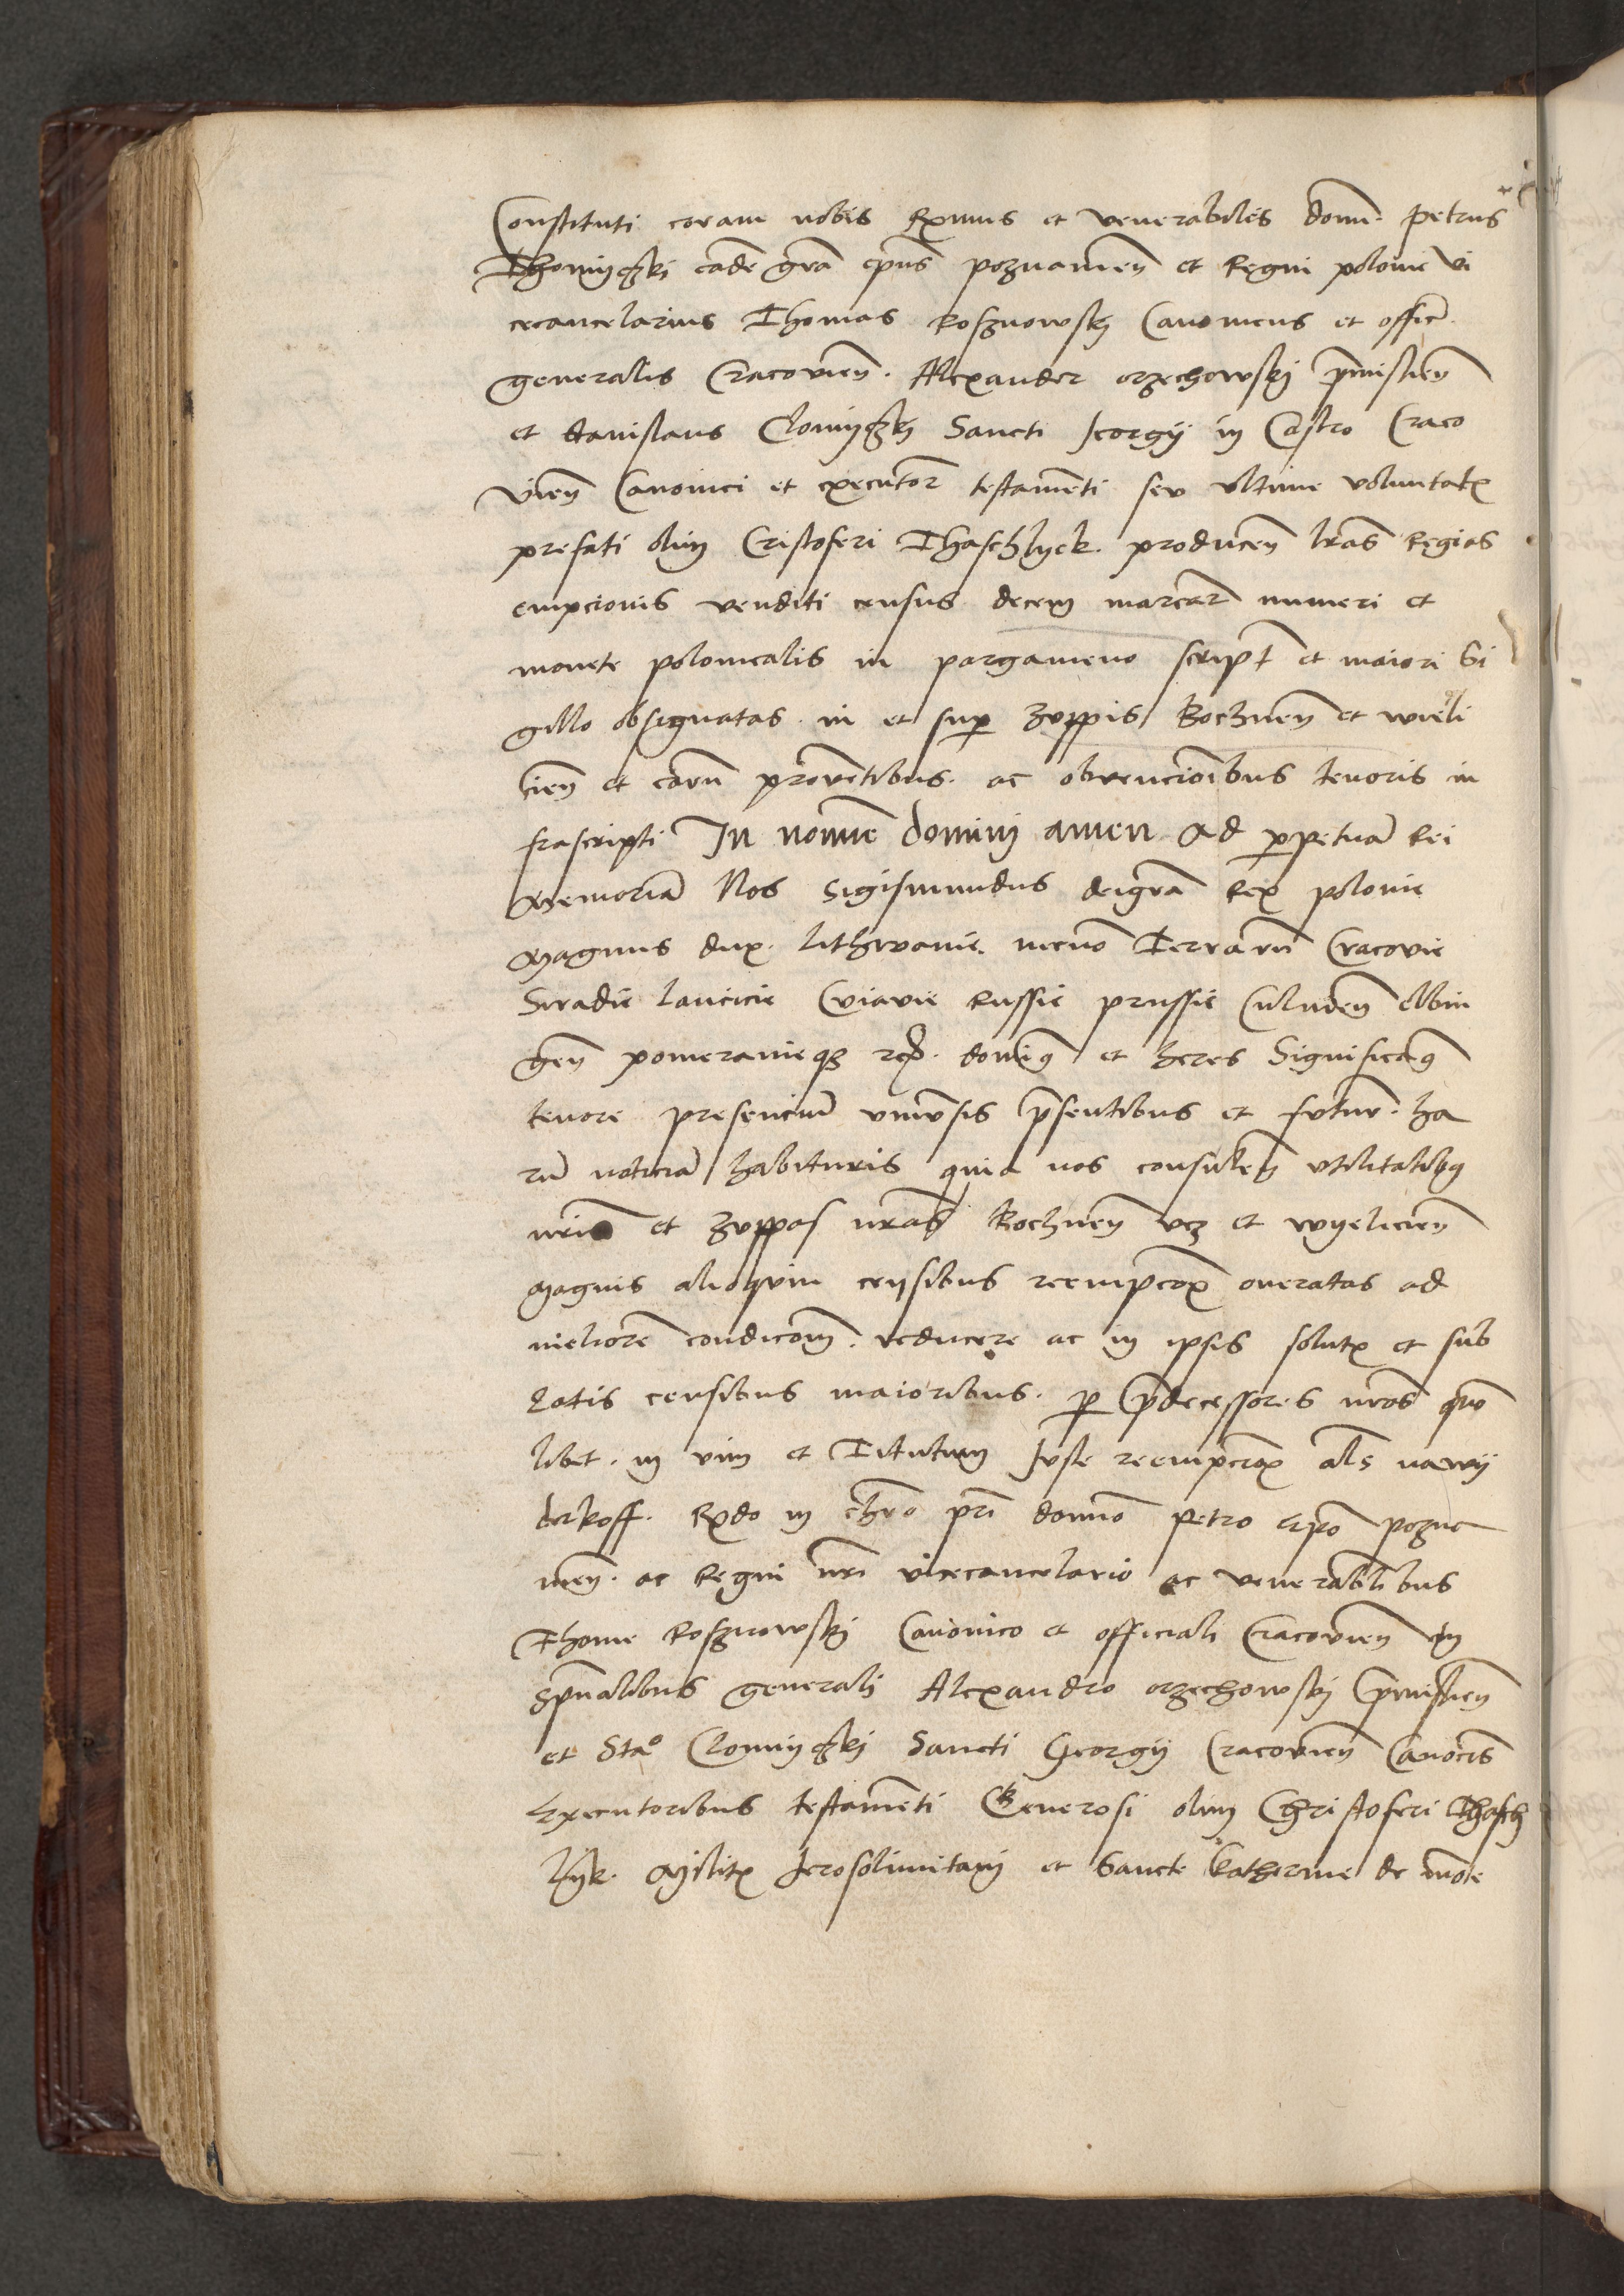 Constituti coram nobis Rximus et venerabiles domi. petrus
Thomijczki eadē gra ep̄us poznamieñ et Regni polonie vi
cecancelarius Thomas Rosznowskj Canonicus et offic̄
generalis Cracovień. Alexander orzechowskj p̄mislień
et stanislaus Clomijczkj Sancti Jeorgij in Castro Craco
vień Canonici et executor̄ testamēti seu vltime voluntatꝭ
prefati olim Cristoferi Thaschlyck. producen̄ lr̄as Regias
empcionis venditi census decem marcar̄ numeri et
monete polonicalis in pargameno script̄ et maiori Si
gillo obsignatas in et sup̱ zuppis Bochnen̄ et wieli
cien̄ et earū proventibus. ac obvencionibus tenoris in
frascripti In nomine dominj amen ad p̱petuā Rei
memoriā Nos Sigismundus dei gra Rex polonie
magnus dux lithwanie. necnō Terrarū Cracovie
Siradie lancicie Cuiavie Russie prussie Culmen̄ elbin
gen̄ pomeranieqꝫ rc̄. domiꝯ et heres Significamꝯ
tenore presenciū vniūsis p̄sentibus et futur̄. ha
rū noticiā habituris quia nos consulen̄ vtilitatibꝯ
nri̅s et zuppas nrās Bochnen̄ vꝫ et wyelicien̄
magnis alioquin censibus reempc̄oꝝ oneratas ad
meliorē condicōm. reducere ac in ipsis solutꝭ et sub
latis censibus maioribus. p̱ p̄decessores nros quo
libet. in vim et Titulum Juste reempcioꝝ al̄s nawÿ
derkoff. Rx̄do in chr̄o pri̅ domno petro ep̄o pozna
nien̄. ac Regni nri̅ vicecancelario ac venerabilibus
Thome Rosznowskj Canonico et officiali Cracovien̄ in
sp̄ualibus generalj Alexandro orzechowskj p̄mislien̄
et Staᵒ Clomijczkj Sancti Georgij Cracovien̄ Canōcis
Executoribus testamēti Generosi olim Christoferi Thasch
lÿk. Militꝭ Jerosolimitanj et Sancte Katherine de mōte